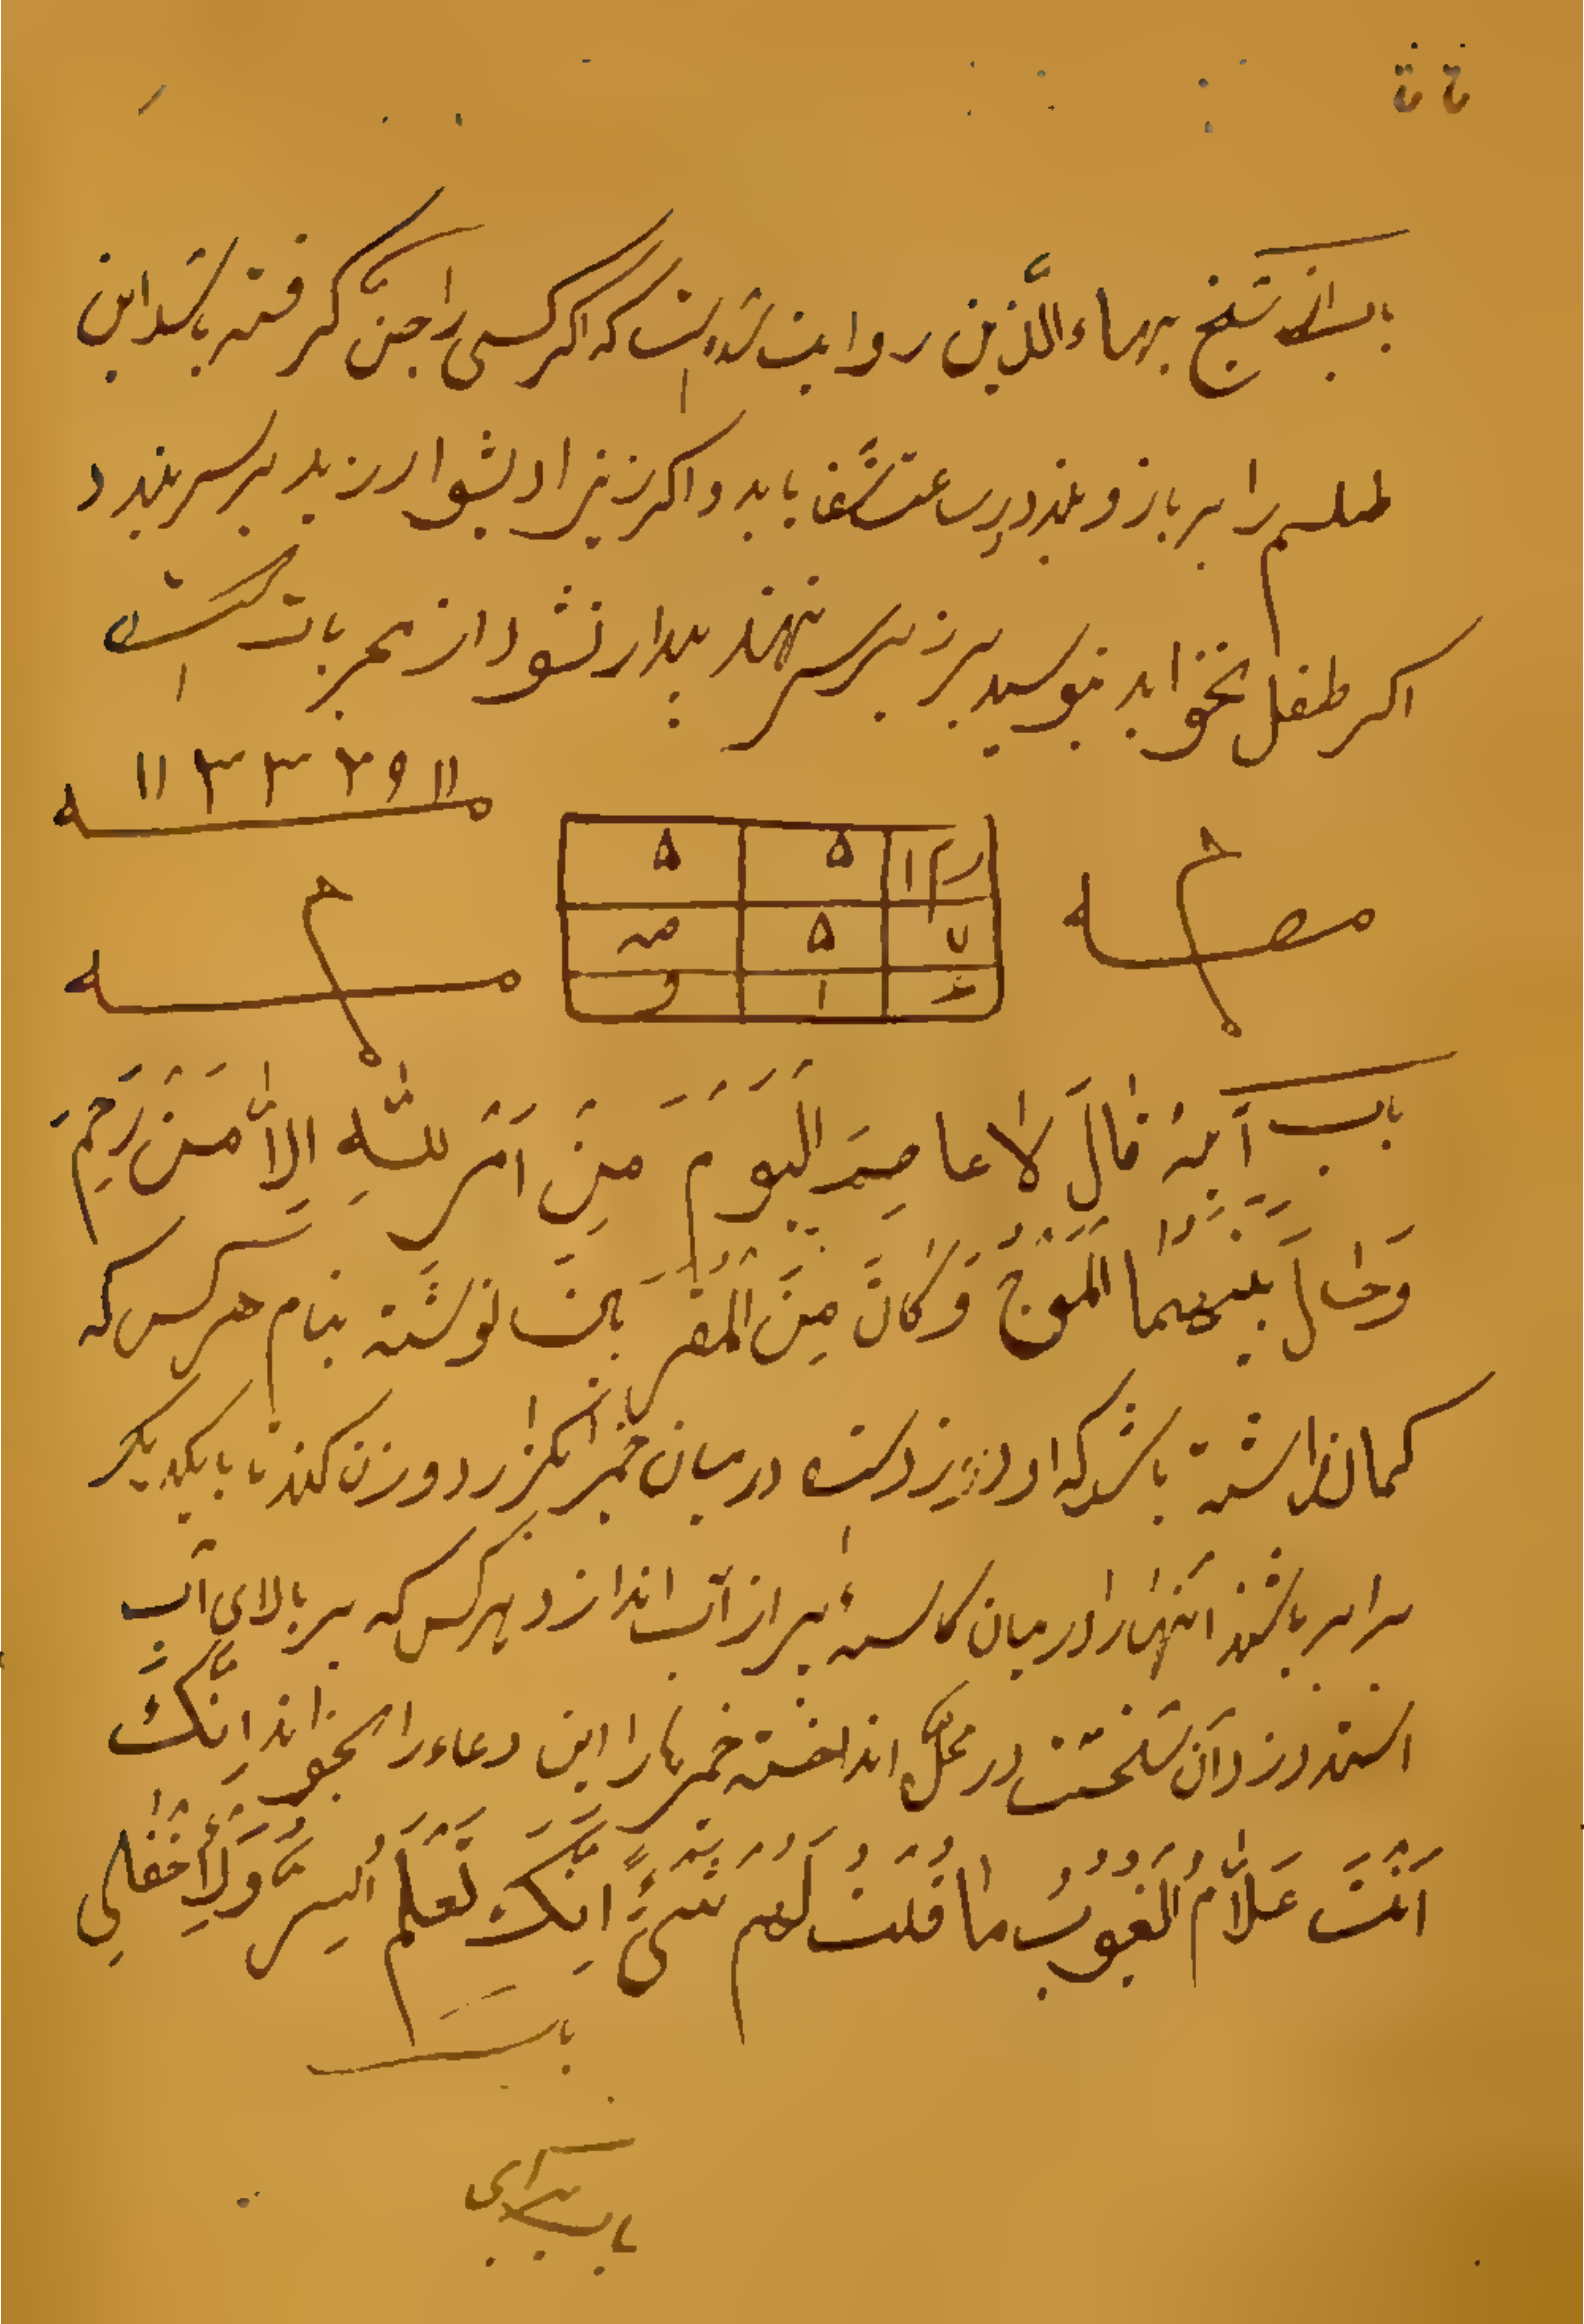 باب از شیخ بهاءالدّین روایت شده است که اکر کسی را جنّ کرفته باشد این
طلسم را بر بازو بندد در ساعت شفا یابد و اکر زن زاد بشوار زید بر سر بندد
اکر طفل نخوابد بنویسید بر زیر سر نهند بیدار نشود از مجربات است
١١ ٩ ٢ ٣ ٣ ١١
۵ ۵
٧ ۵
١ و
باب آیهٔ قٰالَ لاٰ عاصِمَ الیَومَ مِنَ اَمْرِ للّٰهِ اِلاّٰ مَنَ رَحِمَ
وَحٰالَ بَیْنَهُمَا الْمَوْجُ وَ کٰانَ مِنَ الْمُغْرَ نوشته بنام هر کس که
کمان داشته باشد که او دزدست در میان خمیر کزارد و وزن کند تا با یکدیکر
برابر باشند انهٰا را در میان کاسهٔ پر از آب اندازد هر کس که بر بالای آب
استد دزد آنست در محلّ انداخته خمیرها را این دعاء را بخواند اِنَّکَ
اَنْتَ عَلاّٰمُ الْغُیُوبُ مٰا قُلْتُ لَهُمْ شَیءً اِنَّکَ تَعْلَمُ الْسِرُّ وَلاٰ خْفٰی
باب
باب برای